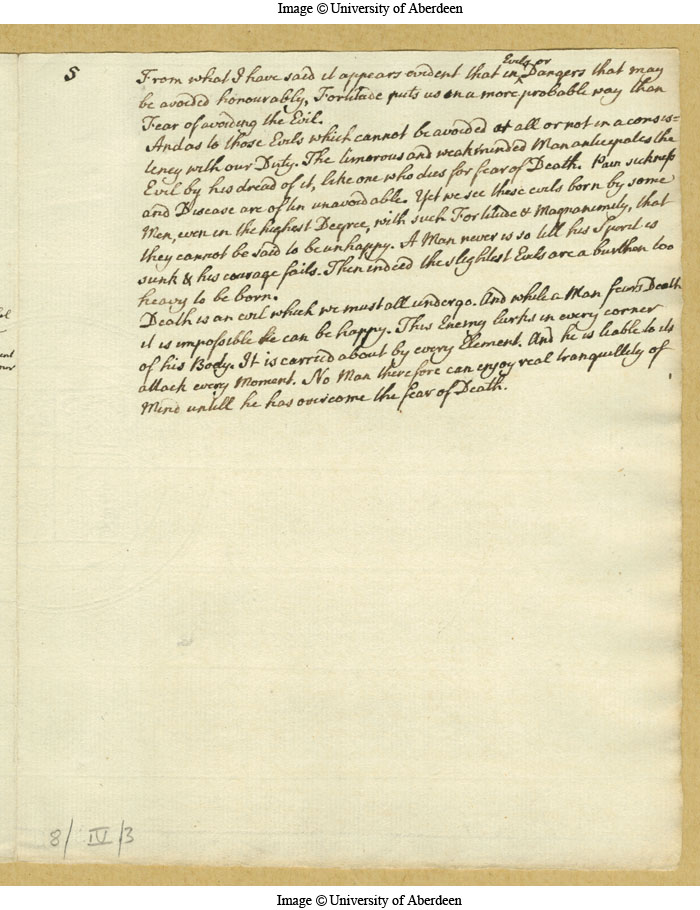 Image © University of Aberdeen
5
From what I have said it appears evident that in Evils or Dangers that may
be avoided honourably, Fortitude puts us in a more probable way than
Fear of avoiding the Evil.
And as to those Evils which cannot be avoided at all or not in a consis=
tency with our Duty. The timorous and weakminded Man anticipates the
Evil by his dread of it, like one who dies for fear of Death. Pain sickness
and Disease are oftin unavoidable. Yet we see these evils born by some
Men, even in the highest Degree, with such Fortitude & Magnanimity, that
they cannot be said to be unhappy. A Man never is so till his Spirit is
sunk & his courage fails. Then indeed the slightest Evils are a burthen too
heavy to be born.
Death is an evil which we must all undergo. And while a Man fears Death
it is impossible he can be happy. This Enemy lurks in every corner
of his Body. It is carried about by every Element. And he is liable to its
attack every Moment. No Man therefore can enjoy real tranquillity of
Mind untill he has overcome the fear of Death.
8/ IV /3
Image © University of Aberdeen